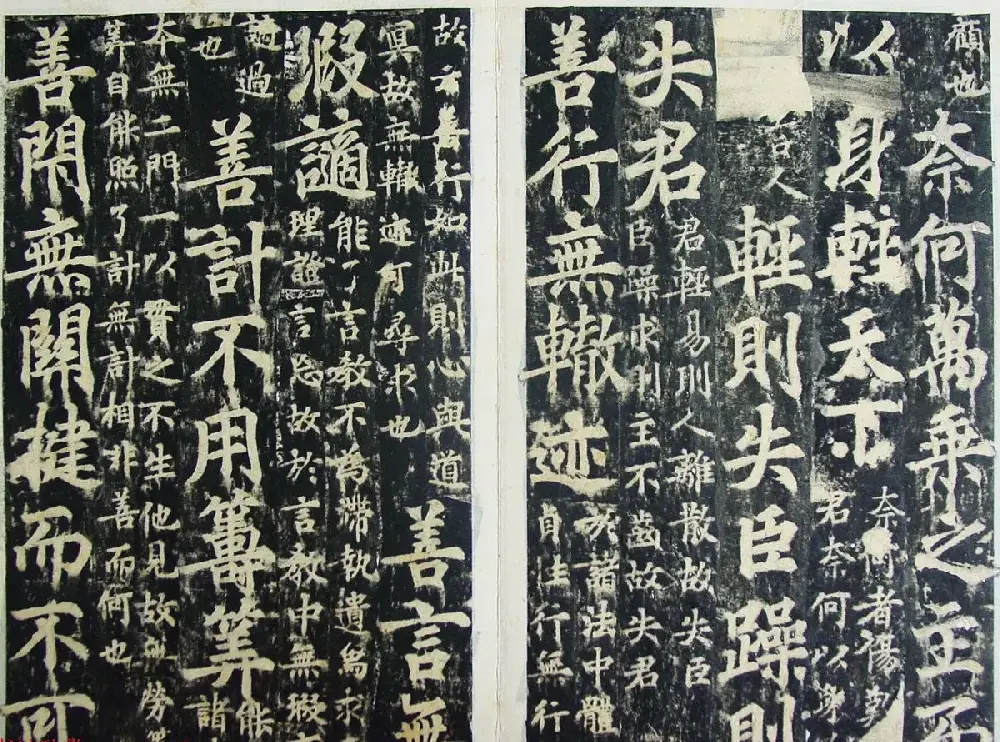 顧也
奈何萬乘之主而
以身輕天下
奈何者傷歎
君奈何以身
人
輕則失臣躁則
失君
君輕易則人離散故失臣
臣躁求利主不齒故失君
善行無轍迹
於諸法中體
自性行無行
故云善行如此則心與道
冥故無轍迹可尋求也
善言無
瑕謫
能了言教不為滯執遺為求
理證言忘故於言教中無瑕
謫過
也
善計不用籌筭
能
諸
本無二門一以貫之不生他見故勞
筭自能照了計無計相非善而何也
善閇無關揵而不可